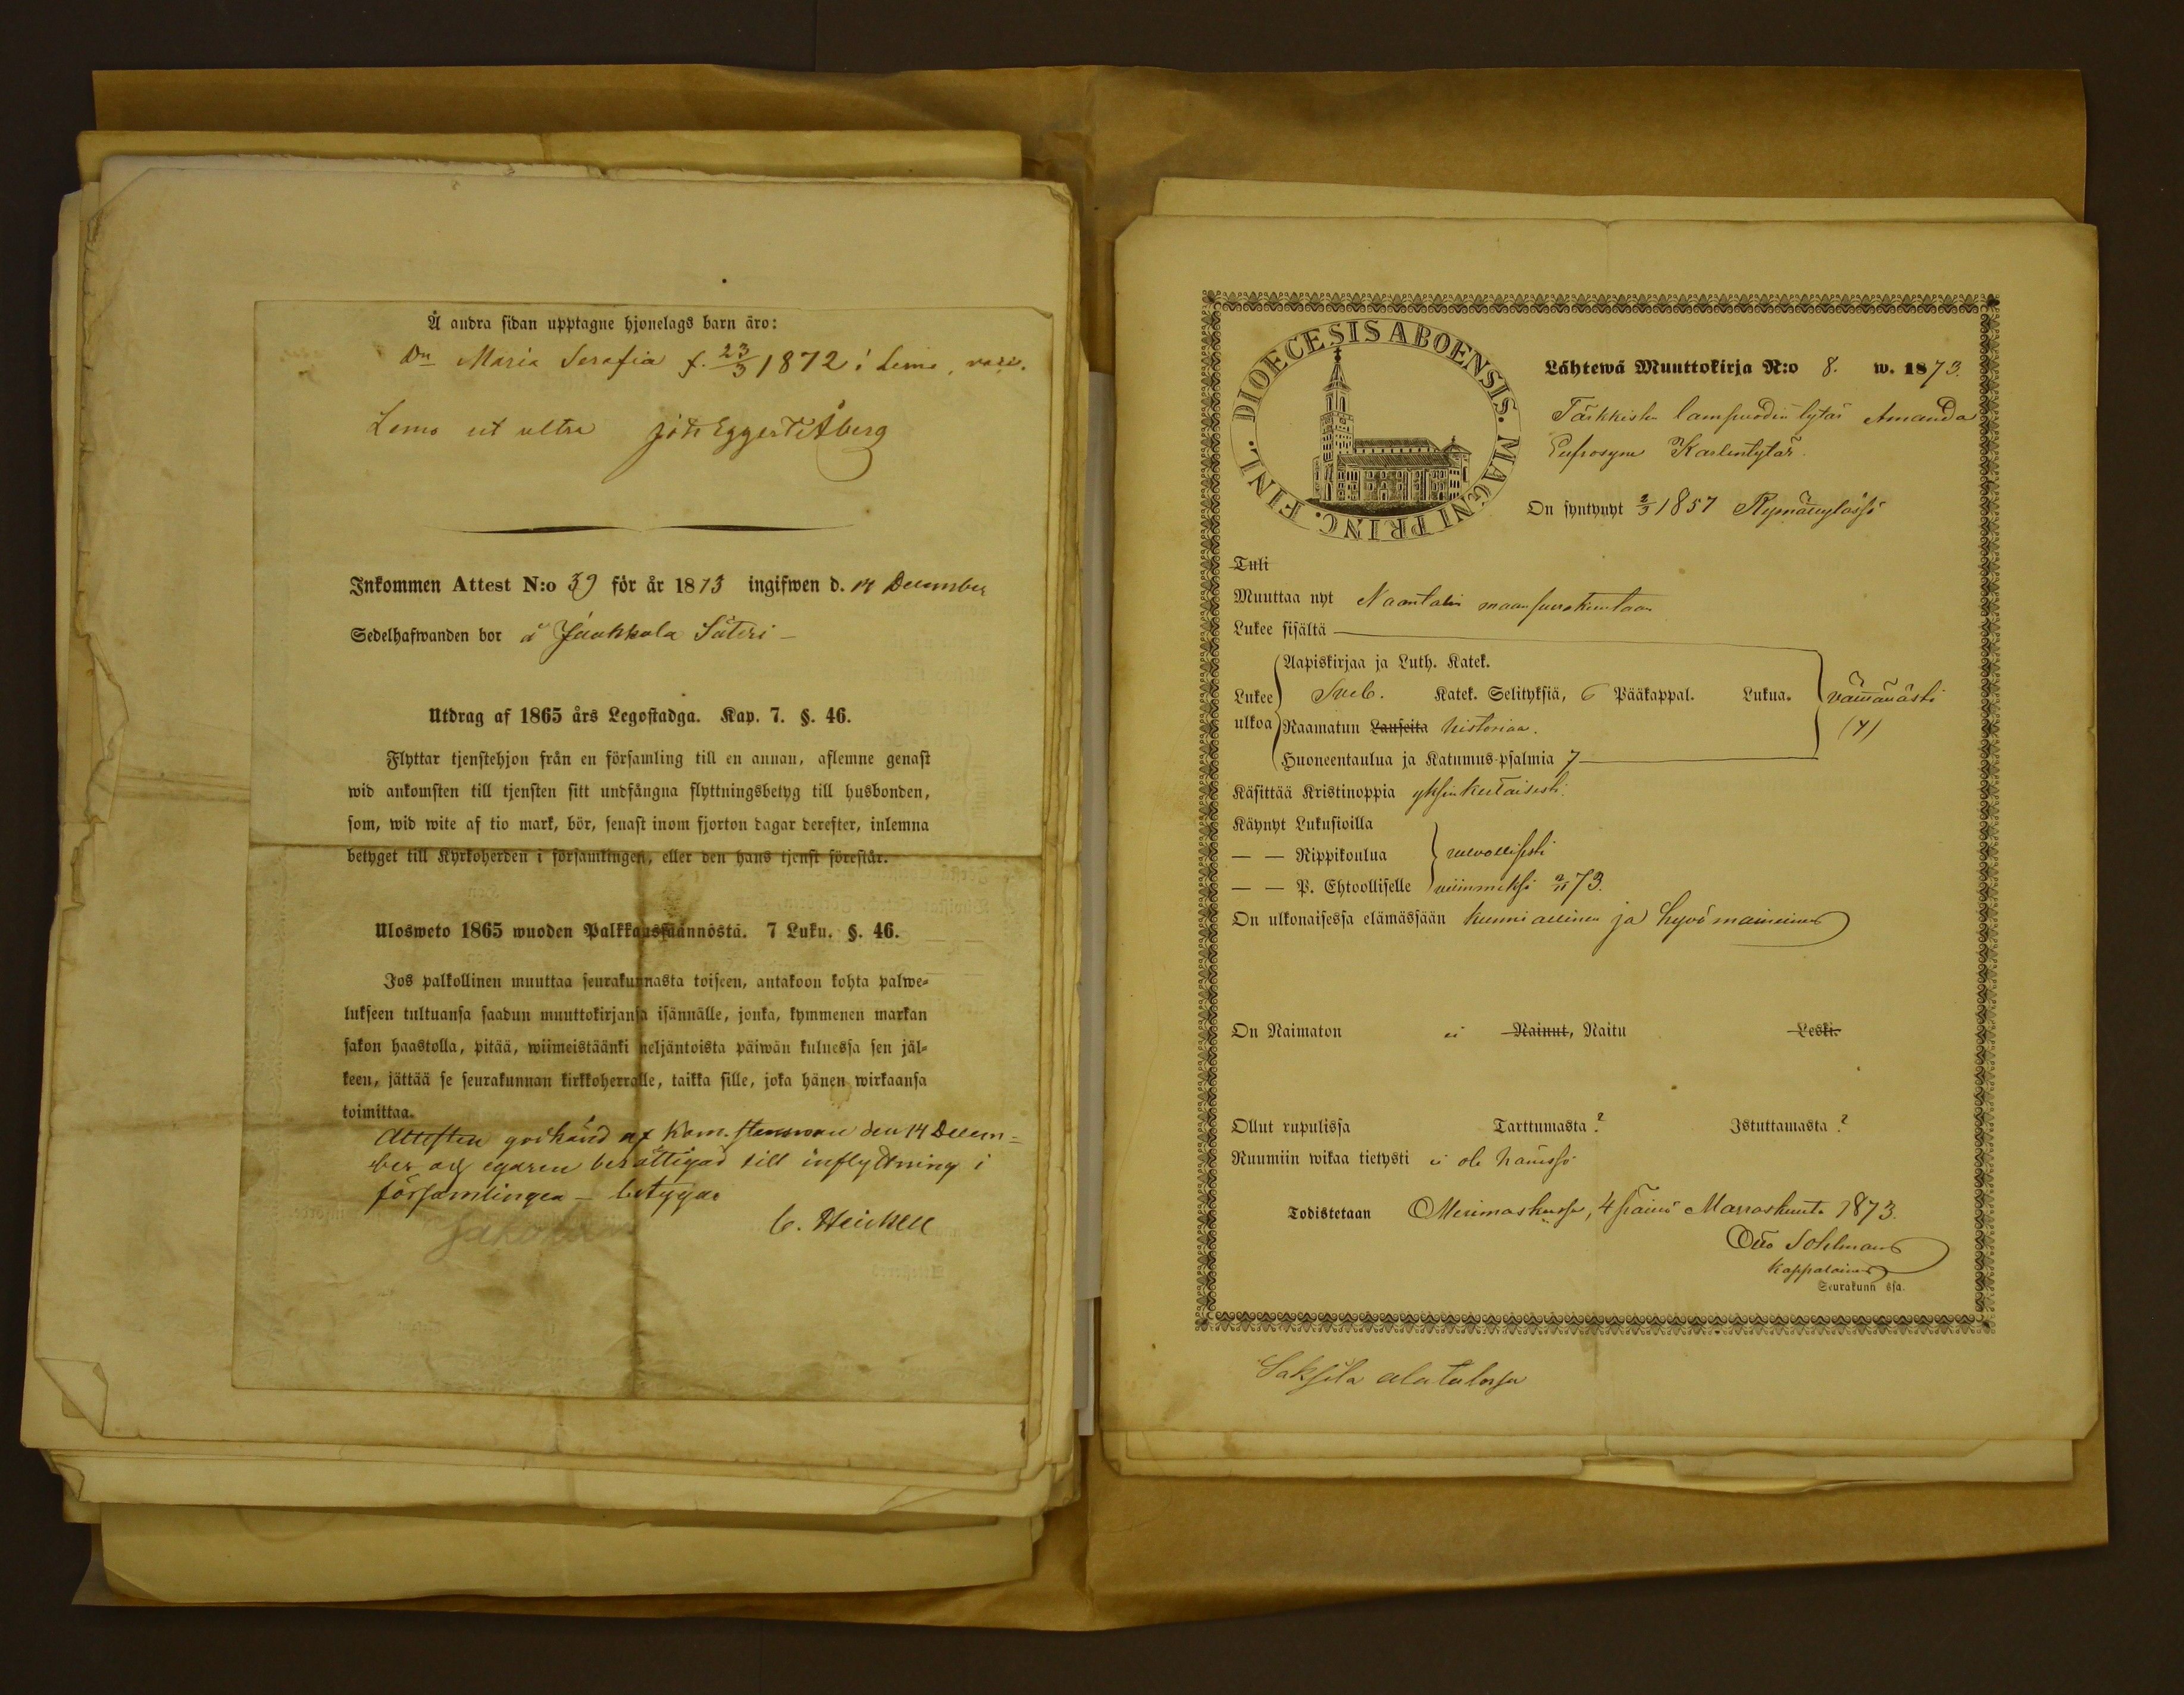 Å andra sidan upptagne hjonelags barn äro:
Dn Maria Serafia f. 23/3 1872 i Lemo, vacc.
Lemo ut ultra Joh Eggert Åberg
Inkommen Attest N:o 39 för år 1873 ingifwen d. 14 December
Sedelhafwanden bor å Jaakkola Säteri –
Utdrag af 1865 års Legostadga. Kap. 7. §. 46.
Flyttar tjenstehjon från en församling till en annan, aflemne genast
wid ankomsten till tjensten sitt undfångna flyttningsbetyg till husbonden,
som, wid wite af tio mark, bör, senast inom fjorton dagar derefter, inlemna
betyget till Kyrkoherden i församlingen, eller den hans tjenst förestår.
Ulosweto 1865 wuoden Palkkaussäännöstä. 7 Luku. §. 46.
Jos palkollinen muuttaa seurakunnasta toiseen, antakoon kohta palwe-
lukseen tultuansa saadun muuttokirjansa isännälle, jonka, kymmenen markan
sakon haastolla, pitää, wiimeistäänki neljäntoista päiwän kuluessa sen jäl-
keen, jättää se seurakunnan kirkkoherralle, taikka sille, joka hänen wirkaansa
toimittaa.
Attesten godkänd af Kom. stämman den 14 Decem-
ber och egaren berättigad till inflyttning i
församlingen – betygar
C. Heickell
Jakola
DIOECESIS ABOENSIS. MAGNI PRINC. FINL.
Lähtewä Muuttokirja N:o 8. w. 1873.
Tärkkisten lampuodin tytär Amanda
Eufrosyne Karlentytär.
On syntynyt 2/3 1857 Rymättylässä
Tuli
Muuttaa nyt Naantalin maaseurakuntaan
Lukee sisältä
Aapiskirjaa ja Luth. Katek.
Lukee Sveb. Katek. Selityksiä, 6 Pääkappal. Lukua. vammästi
ulkoa Raamatun Lauseita historiaa.
Huoneentaulua ja Katumus-psalmia 7
Käsittää Kristinoppia yksinkertaisesti.
Käynyt Lukusioilla
— — Rippikoulua
— — P. Ehtoolliselle viimmeksi 2/11 73.
On ulkonaisessa elämässään kunniallinen ja hyvämaineinen
On Naimaton ei Nainut, Naitu Leski.
Ollut rupulissa Tarttumasta? Istuttamasta?
Ruumiin wikaa tietysti ei ole hänessä
Todistetaan Merimaskussa, 4 päivä Marraskuuta 1873.
Otto Sohlman
Kappalainen
Seurakunn ssa.
Saksila alatalossa